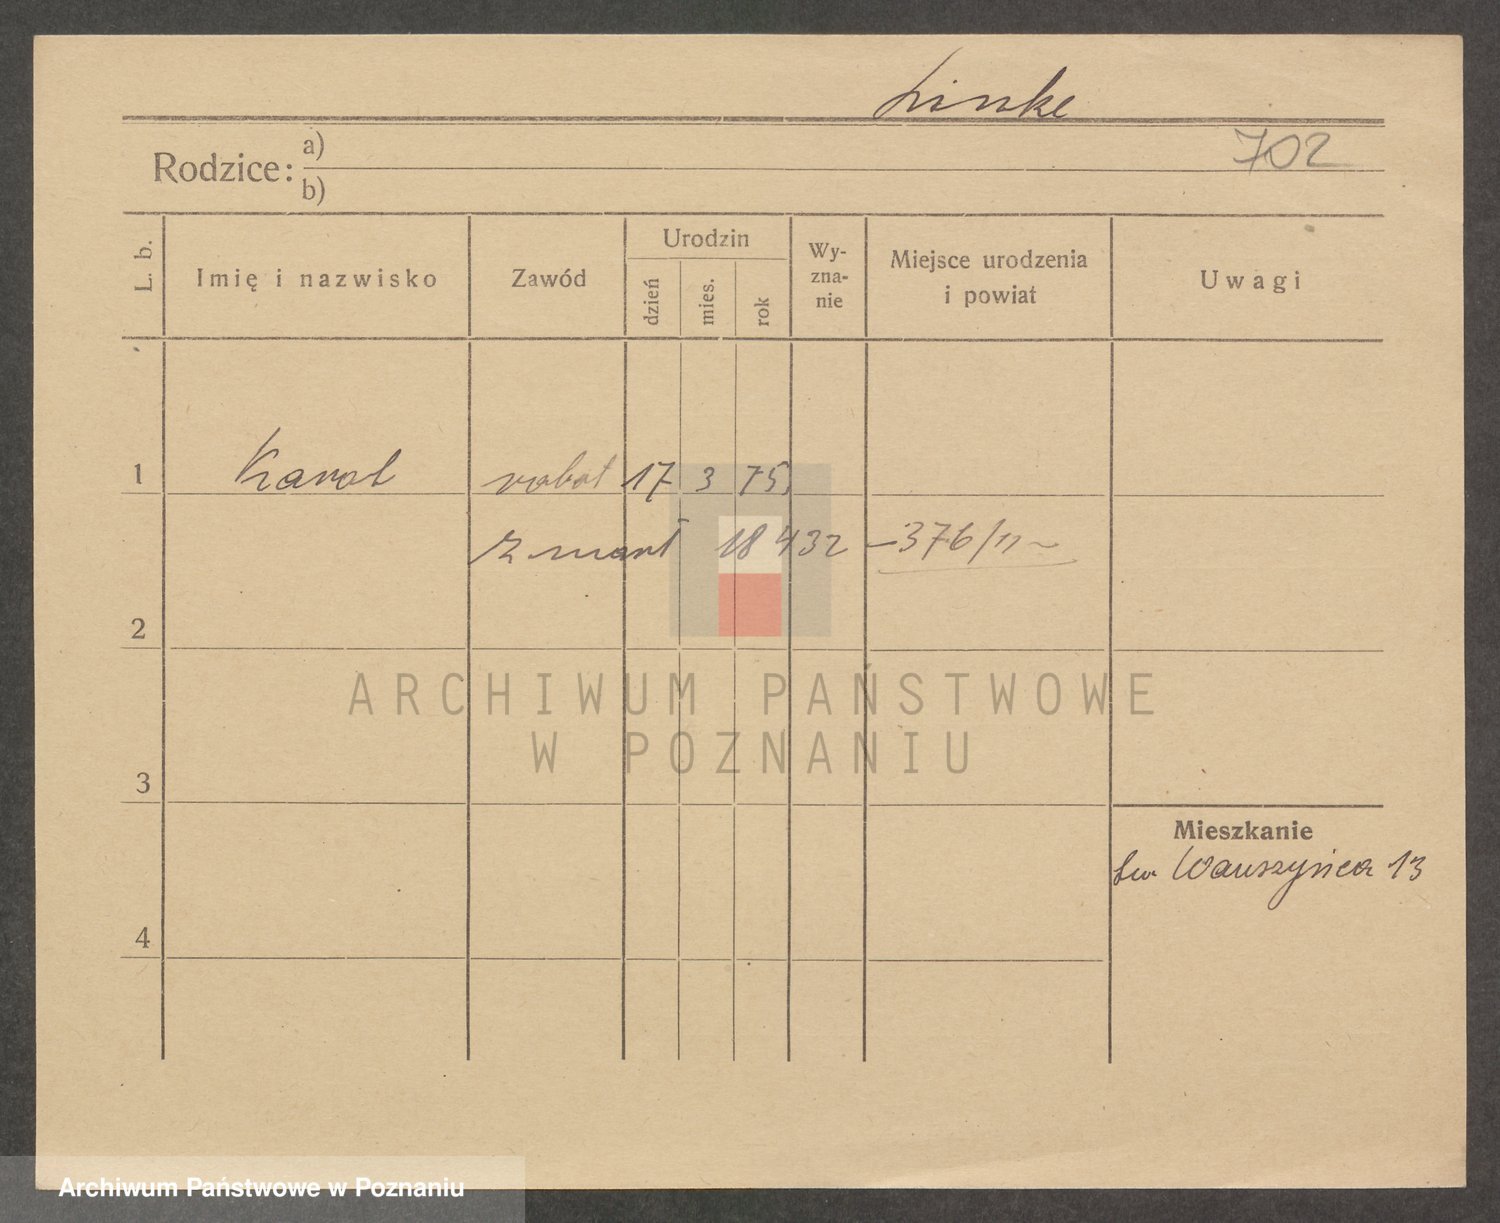 Linke
702
Rodzice: a)
b)
L. b. Imię i nazwisko Zawód Urodzin dzień mies. rok Wy-zna-nie Miejsce urodzenia i powiat Uwagi
1 Karol robot 17 3 75
zmarł 18 4 32 – 376/11 –
2
3
Mieszkanie
św Wawrzyńca 13
4
ARCHIWUM PAŃSTWOWE
W POZNANIU
Archiwum Państwowe w Poznaniu